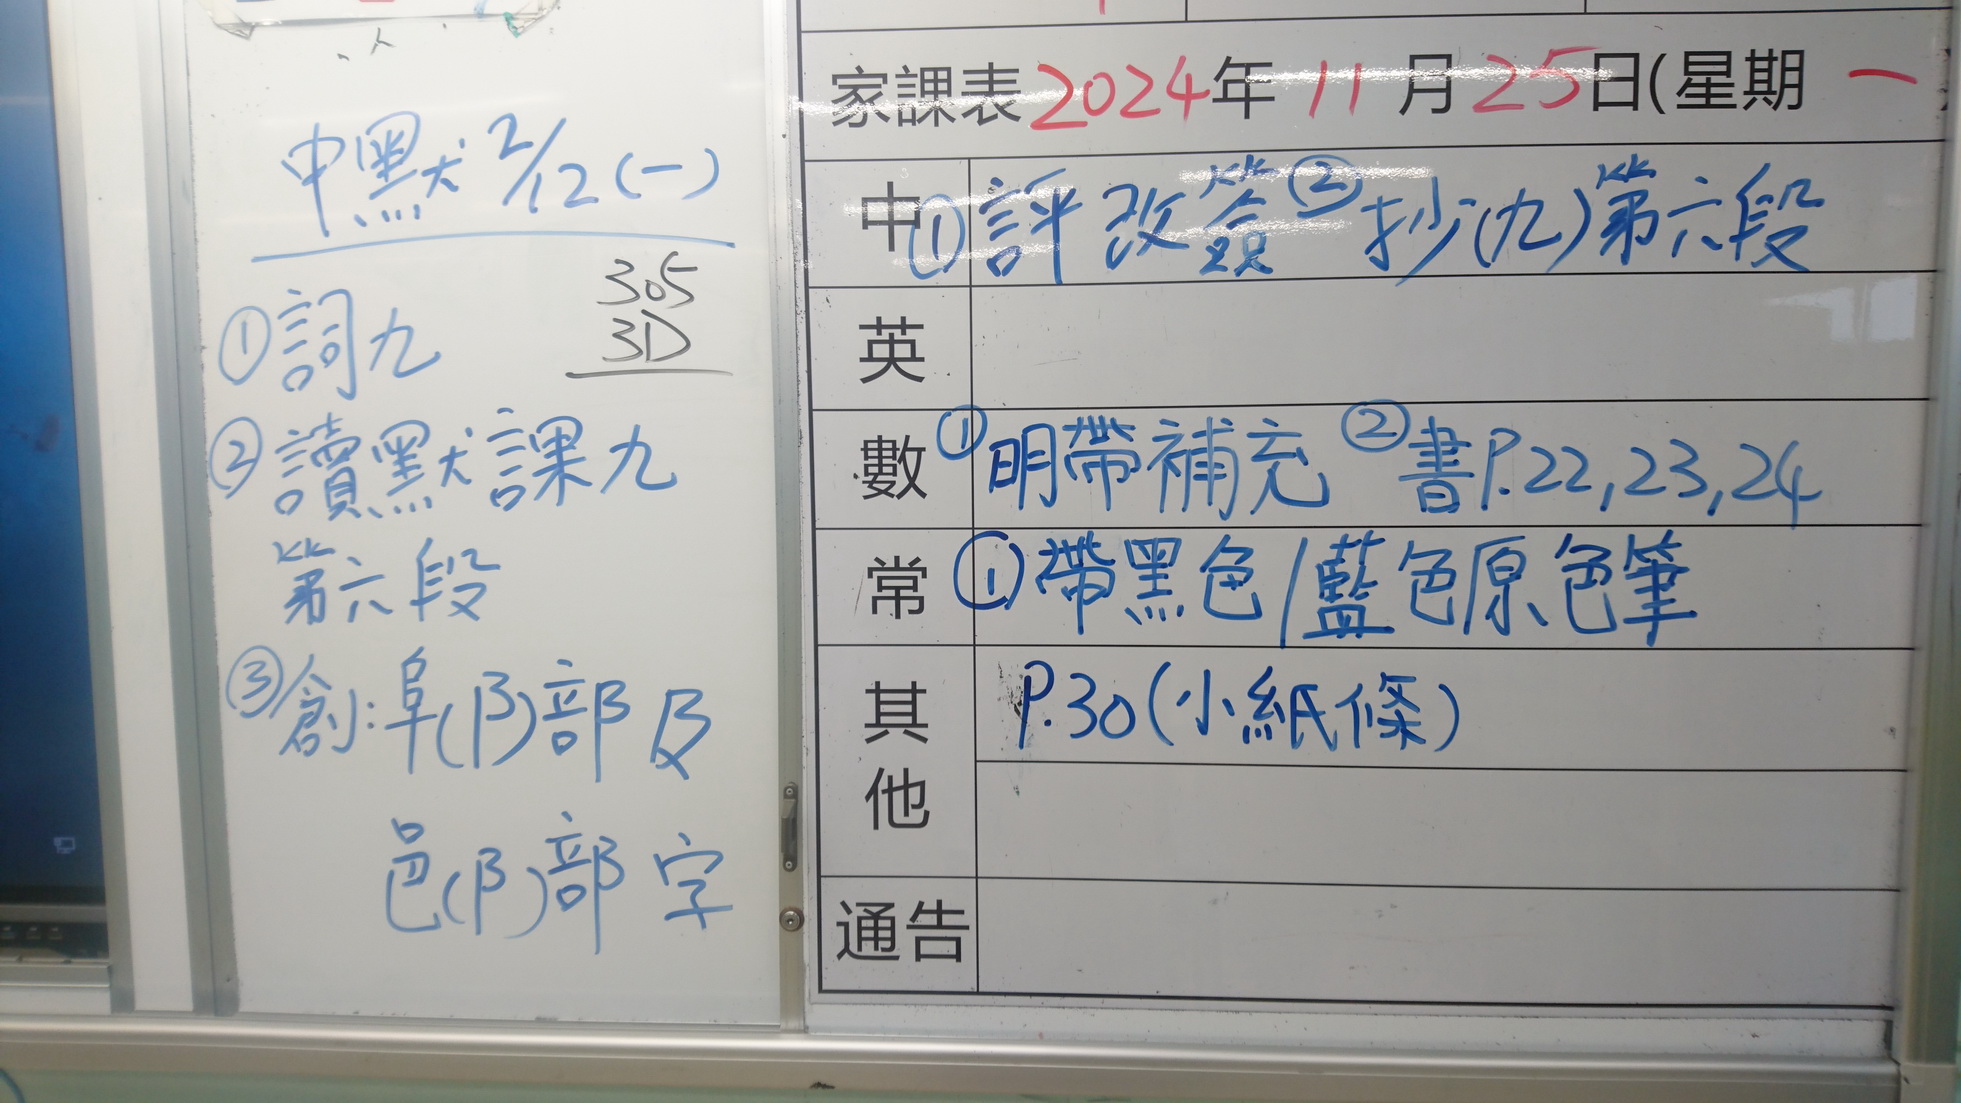 中默 2/12 (一)
305
3D
① 詞九
② 讀默課九
第六段
③ 創:阜(阝)部及
邑(阝)部字
家課表 2024 年 11 月 25 日(星期 一
中 ① 評改簽 ② 抄(九)第六段
英
數 ① 明帶補充 ② 書P.22,23,24
常 ① 帶黑色/藍色原色筆
其他 P.30(小紙條)
通告